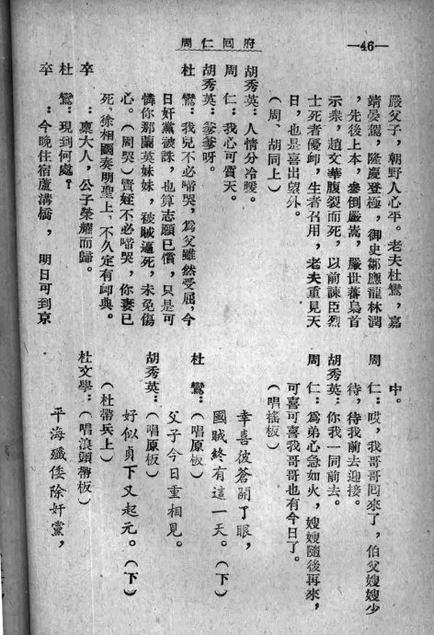 周仁囘府
—46—
嚴父子，朝野人心平。老夫杜鸞，嘉
靖晏駕，隆慶登極，御史鄒應龍林潤
，先後上本，參倒嚴嵩，嚴世蕃梟首
示衆，趙文華腹裂而死，以前諫臣烈
士死者優卹，生者召用，老夫重見天
日，也是喜出望外。
（周、胡同上）
胡秀英：人情分冷暖。
周　仁：我心可質天。
胡秀英：爹爹呀。
杜　鸞：我兒不必啼哭，爲父雖然受屈，今
日奸黨被誅，也算志願已償，只是可
憐你那蘭英妹妹，被賊逼死，未免傷
心。（周哭）賢姪不必啼哭，你妻已
死，徐相國奏明聖上，不久定有卹典。
卒　：禀大人，公子榮耀而歸。
杜　鸞：現到何處？
卒　：今晚住宿蘆溝橋，明日可到京
中。
周　仁：哎，我哥哥囘來了，伯父嫂嫂少
待，待我前去迎接。
胡秀英：你我一同前去。
周　仁：爲弟心急如火，嫂嫂隨後再來，
可喜可喜我哥哥也有今日了。
（唱搖板）
幸喜彼蒼開了眼，
國賊終有這一天。（下）
杜　鸞：（唱原板）
父子今日重相見。
胡秀英：（唱原板）
好似貞下又起元。（下）
（杜帶兵上）
杜文學：（唱浪頭帶板）
平海殲倭除奸黨，